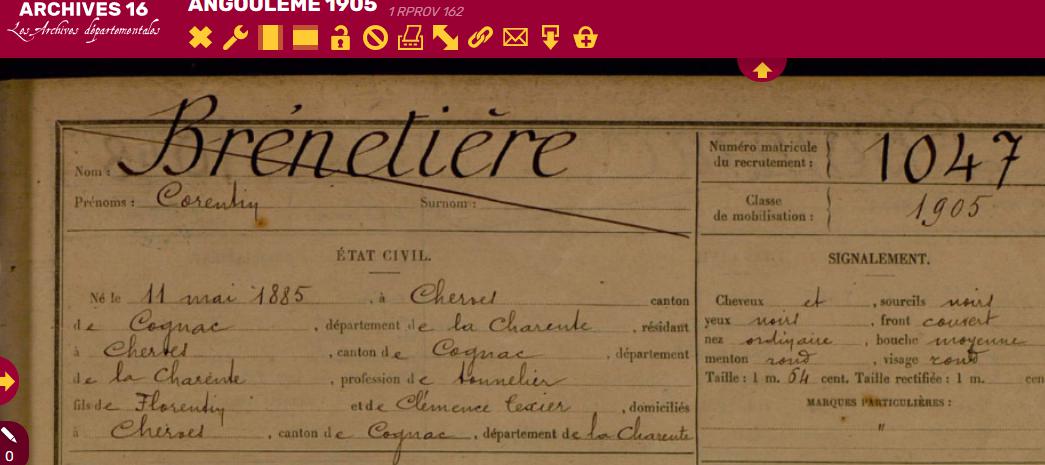 ARCHIVES 16
Les Archives départementales
ANGOULEME 1905 1 RPROV 162
Nom : Brénetière
Prénoms : Corentin Surnom :
Numéro matricule du recrutement : 1047
Classe de mobilisation : 1905
ÉTAT CIVIL.
Né le 11 mai 1885, à Cherves canton
de Cognac, département de la Charente, résidant
à Cherves, canton de Cognac, département
de la Charente, profession de tonnelier
fils de Florentin et de Clémence Texier, domiciliés
à Cherves, canton de Cognac, département de la Charente
SIGNALEMENT.
Cheveux et, sourcils noirs
yeux noirs, front couvert
nez ordinaire, bouche moyenne
menton rond, visage rond
Taille : 1 m. 54 cent. Taille rectifiée : 1 m. cen
MARQUES PARTICULIÈRES :
"
0